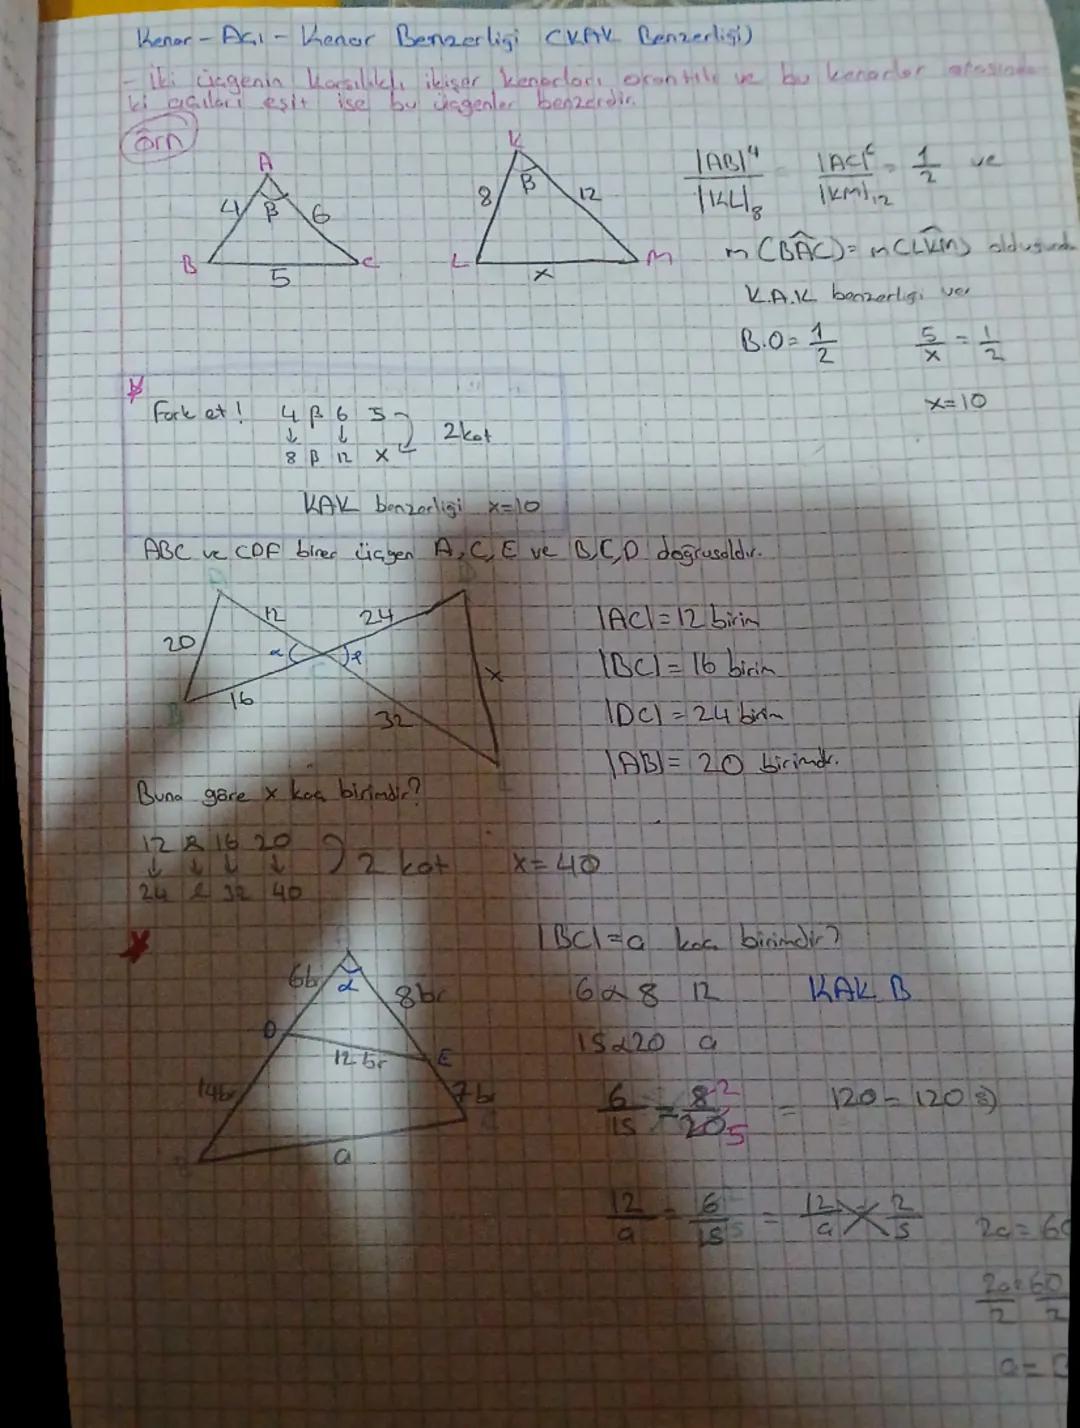 Kenar - Açı - Kenar Benzerligi (KAK Benzerligi)
- İki üçgenin karşılıklı ikişer kenarları orantılı ve bu kenarlar arasında
ki açıları eşit ise bu üçgenler benzerdir.
Örn
A
4 β 6
B 5 C
K
8 β 12
L x M
|AB| 4 / |KL| 8 = |AC| 6 / |KM| 12 = 1/2 ve
m(BAC) = m(LKM) olduğundan
K.A.K benzerligi var
B.O = 1/2 5/x = 1/2
x=10
Fark et! 4 β 6 5
8 β 12 x
2 kat
KAK benzerligi x=10
ABC ve CDF birer üçgen A,C,E ve B,C,D doğrusaldır.
12 24
20 α α x
16 32
|AC| = 12 birim
|BC| = 16 birim
|DC| = 24 birim
|AB| = 20 birimdir.
Buna göre x kaç birimdir?
12 α 16 20
24 α 32 40
2 kat x=40
|BC| = a kaç birimdir?
6br α 8br
D 12 br E
14br 7br
a
6 α 8 12 KAK B
15 α 20 a
6/15 = 8 2 / 20 5 = 120 = 120
12/a = 6/15 = 12/a 2/5 2a = 60
2a/2 = 60/2
a =